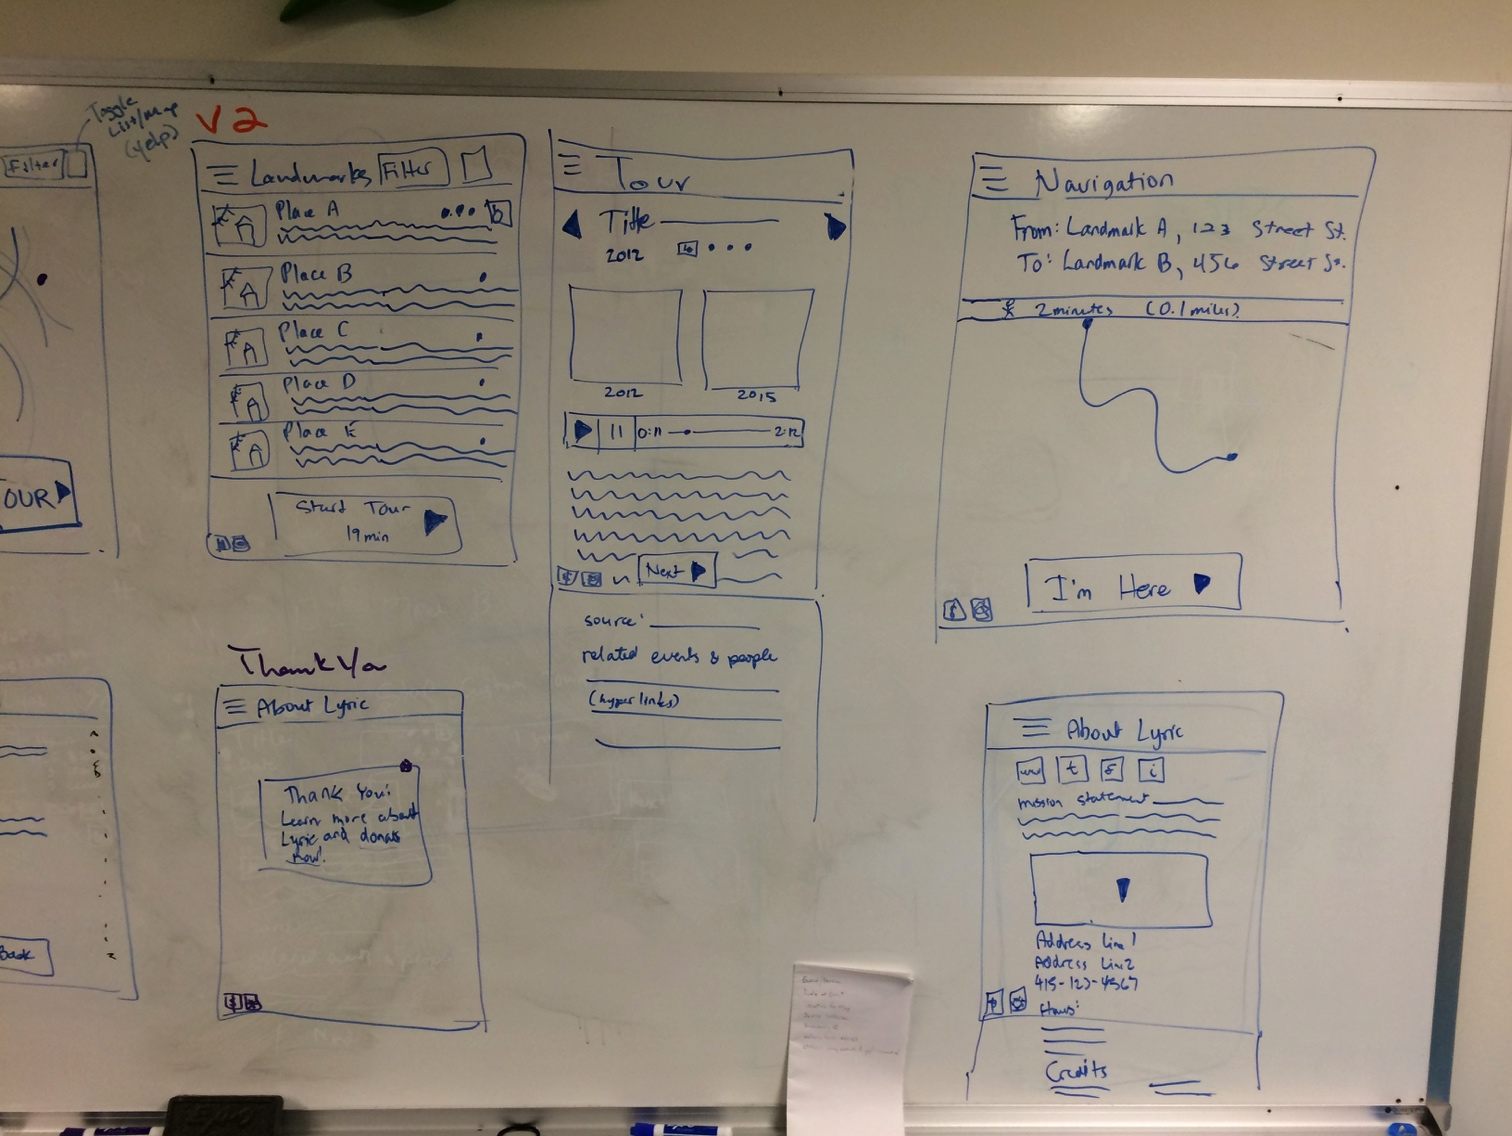 Toggle
List/map
(yelp)
Filter
OUR
Back
V2
Landmarks Filter
Place A
Place B
Place C
Place D
Place E
Start Tour
19 min
Tour
Title
2012
2012 2015
0:11 2:12
Next
source:
related events & people
(hyperlinks)
Navigation
From: Landmark A, 123 Street St.
To: Landmark B, 456 Street St.
2 minutes (0.1 miles)
I'm Here
Thank You
About Lyric
Thank You!
Learn more about
Lyric and donate
now!
About Lyric
t f i
mission statement
Address Line 1
Address Line 2
415-123-4567
Hours:
Credits